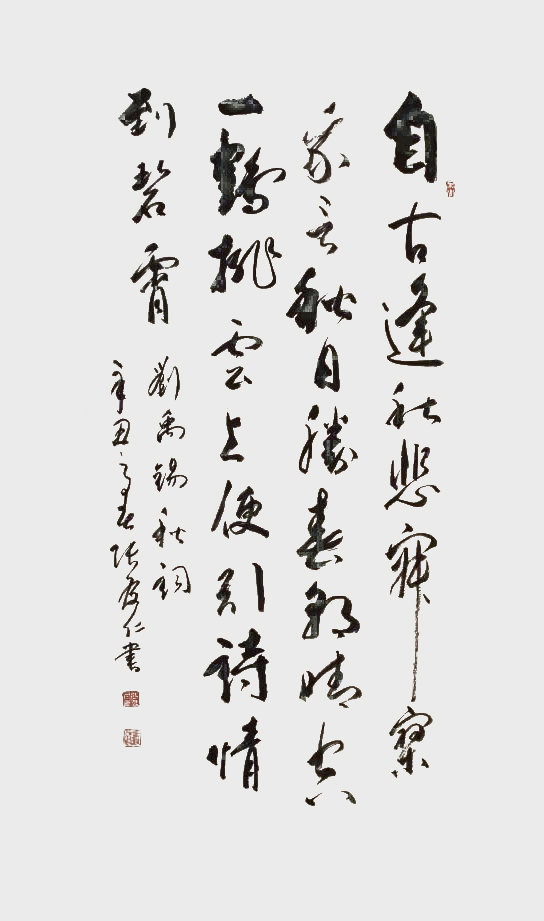 自古逢秋悲寂寥
我言秋日勝春朝晴空
一鶴排雲上便引詩情
到碧霄
劉禹錫秋詞
辛丑春張仁書